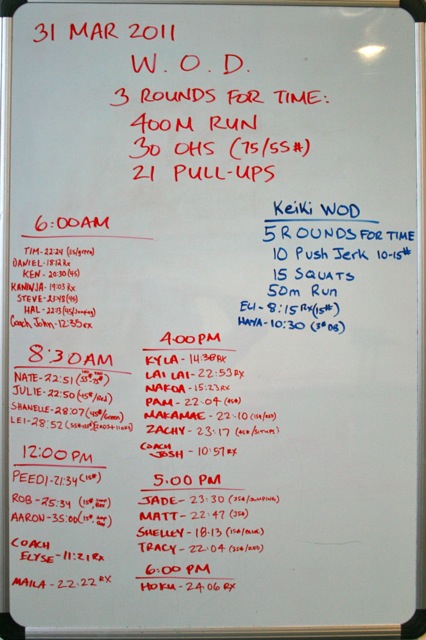 31 MAR 2011
W.O.D.
3 ROUNDS FOR TIME:
400M RUN
30 OHS (75/55#)
21 PULL-UPS
KeiKi WOD
5 ROUNDS FOR TIME
10 Push Jerk 10-15#
15 SQUATS
50m Run
ELI-8:15 RX (15#)
HAYA-10:30 (3#DB)
6:00AM
TIM-22:24
DANIEL-18:12 RX
KEN-20:30 (45)
KANINJA-19:03 RX
STEVE-23:48 (45)
HAL-22:13 (45/Jumping)
Coach John-12:35 RX
8:30AM
NATE-22:51
JULIE-22:50 (45#/Red)
SHANELLE-28:07 (45#/Green)
LEI-28:52
12:00PM
PEEDI-21:34 (15#)
ROB-25:34
AARON-35:00
COACH
ELYSE-11:21 RX
MAILA-22:22 RX
4:00PM
KYLA-14:38 RX
LAI LAI-22:59 RX
NAKOA-15:23 RX
PAM-22:04 (45#)
MAKAMAE-22:10 (15#/RED)
ZACHY-23:17 (45#/SITUPS)
COACH
JOSH-10:57 RX
5:00PM
JADE-23:30 (35#/JUMPING)
MATT-22:47 (35#)
SHELLEY-18:13 (15#/BLUE)
TRACY-22:04 (35#/RED)
6:00PM
HOKU-24:06 RX